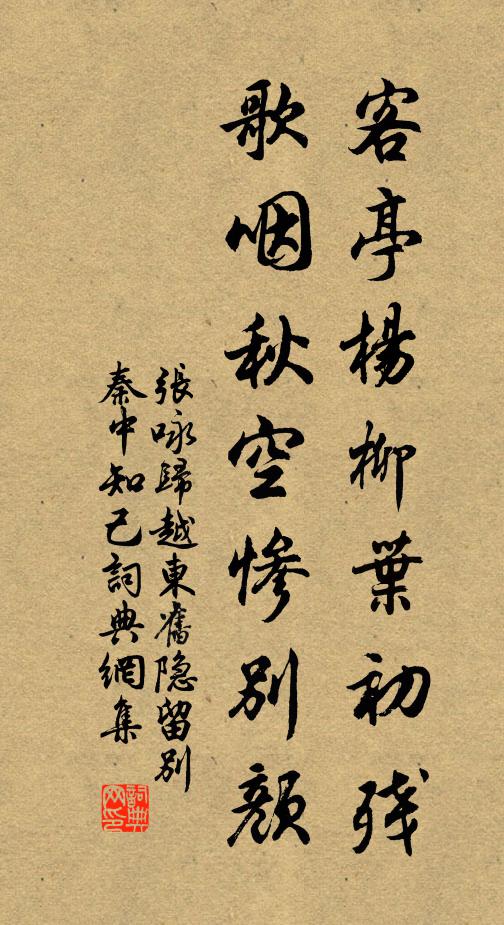 客亭楊柳葉初殘
歌咽秋空慘別顏
張咏歸越東舊隐留別
秦中知己詞典網集
詞典網印